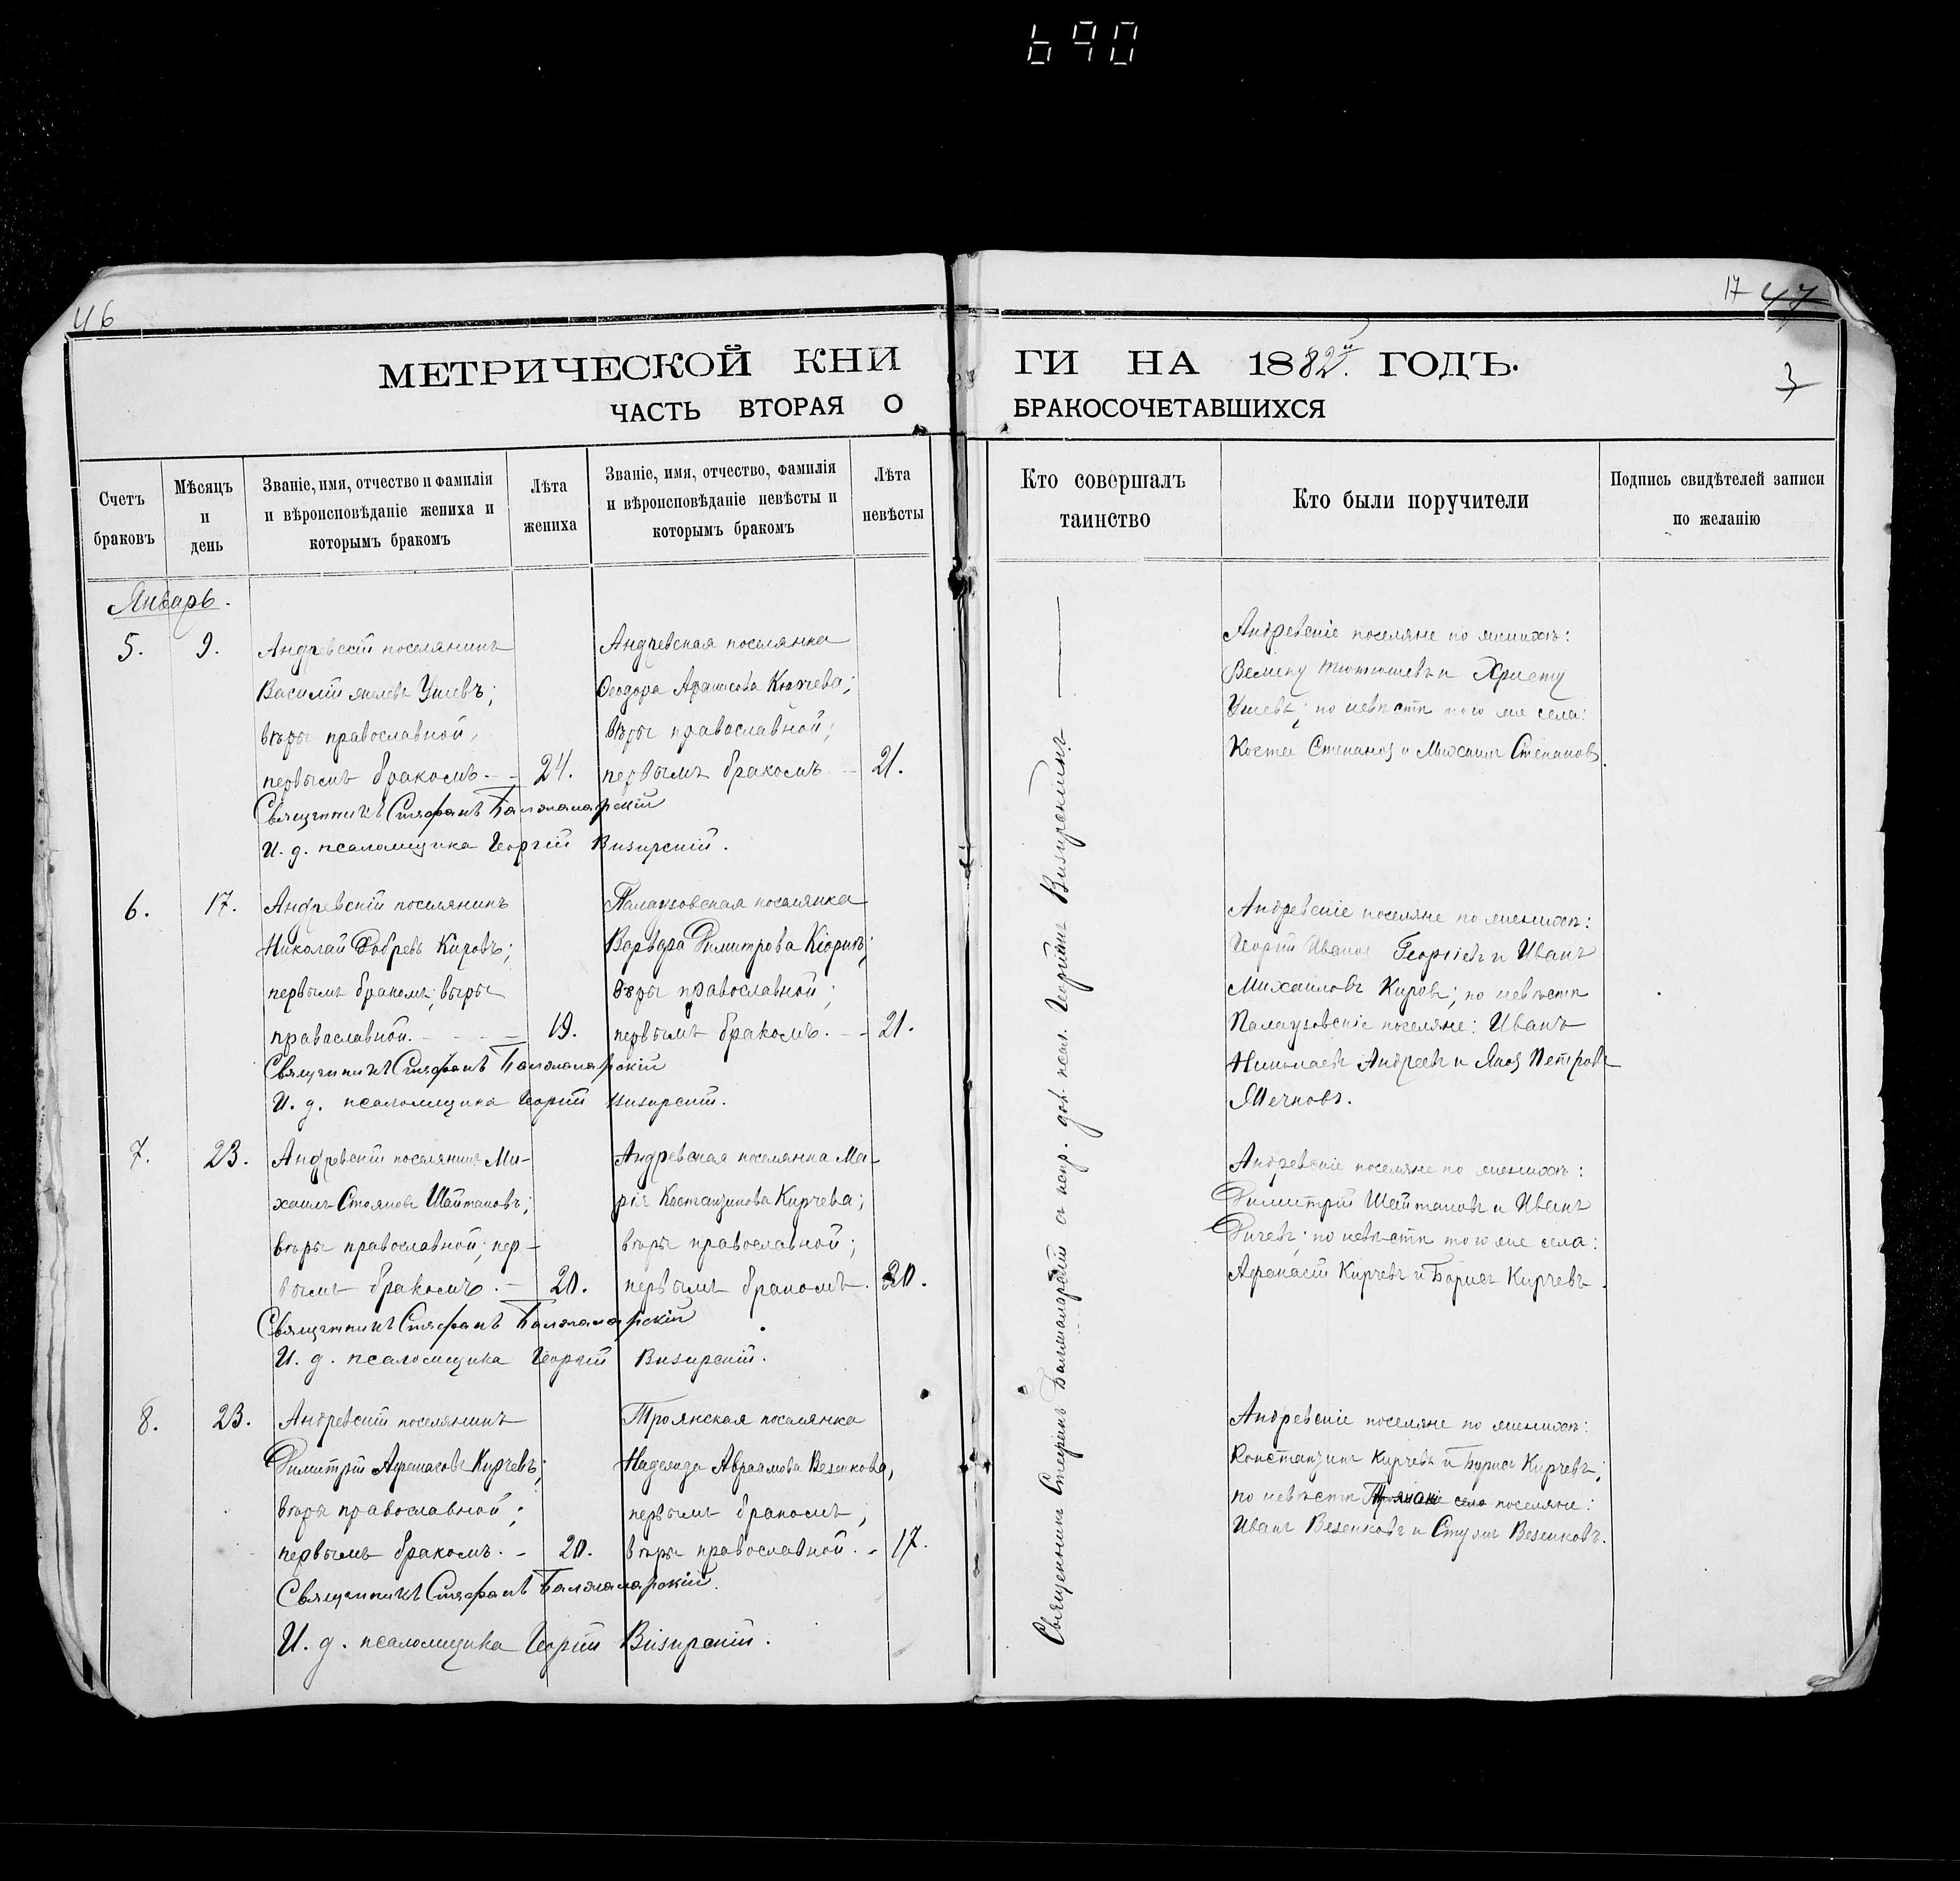 690
46
17 47
3
МЕТРИЧЕСКОЙ КНИ ГИ НА 1882й ГОДЪ.
ЧАСТЬ ВТОРАЯ О БРАКОСОЧЕТАВШИХСЯ
Счетъ браковъ
Мѣсяцъ и день
Званіе, имя, отчество и фамилія
и вѣроисповѣданіе жениха и
которымъ бракомъ
Лѣта жениха
Званіе, имя, отчество, фамилія
и вѣроисповѣданіе невѣсты и
которымъ бракомъ
Лѣта невѣсты
Кто совершалъ
таинство
Кто были поручители
Подпись свидѣтелей записи
по желанію
Январь.
5. 9.
Андревскій поселянинъ
Василій Ушевъ;
вѣры православной,
первымъ бракомъ. 24.
Андревская поселянка
Ѳеодора Афанасова Кирчева;
вѣры православной;
первымъ бракомъ 21.
Священникъ Стефанъ Балжаларскій
И. д. псаломщика Георгій Визирскій.
Андревскіе поселяне по женихѣ:
Велику и Христу
Ушевъ; по невѣстѣ того же села:
Костя Степановъ и Михаилъ Степановъ.
6. 17.
Андревскій поселянинъ
Николай Добревъ Кировъ;
первымъ бракомъ; вѣры
православной. 19.
Палаузовская поселянка
Варвара Димитрова Кіорпъ;
вѣры православной;
первымъ бракомъ. 21.
Священникъ Стефанъ Балжаларскій
И. д. псаломщика Георгій Визирскій.
Андревскіе поселяне по женихѣ:
Георгій Ивановъ Георгіевъ и Иванъ
Михаиловъ Кировъ; по невѣстѣ
Палаузовскіе поселяне: Иванъ
Николаевъ Андреевъ и Яковъ Петровъ
Мечковъ.
7. 23.
Андревскій поселянинъ Ми-
хаилъ Стояновъ Шайтановъ;
вѣры православной; пер-
вымъ бракомъ. 20.
Андревская поселянка Ма-
рія Костандинова Кирчева;
вѣры православной;
первымъ бракомъ. 20.
Священникъ Стефанъ Балжаларскій
И. д. псаломщика Георгій Визирскій.
Андревскіе поселяне по женихѣ:
Димитрій Шайтановъ и Иванъ
Дичевъ; по невѣстѣ того же села:
Афанасій Кирчевъ и Борисъ Кирчевъ.
8. 23.
Андревскій поселянинъ
Димитрій Афанасовъ Кирчевъ;
вѣры православной;
первымъ бракомъ. 20.
Троянская поселянка
Надежда Авраамова Везенкова,
первымъ бракомъ,
вѣры православной. 17.
Священникъ Стефанъ Балжаларскій.
И. д. псаломщика Георгій Визирскій.
Андревскіе поселяне по женихѣ:
Константинъ Кирчевъ и Борисъ Кирчевъ;
по невѣстѣ село поселяне:
Иванъ Везенковъ и Везенковъ.
Священникъ Стефанъ Балжаларскій съ испр. дол. псал. Георгіемъ Визирскимъ